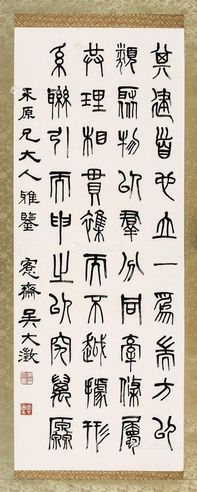 其建首也立一為耑方以
類聚物以羣分同牽條屬
共理相貫襍而不越據形
系聯引而申之以究萬厵
原兄大人雅鑒 愙齋吳大澂